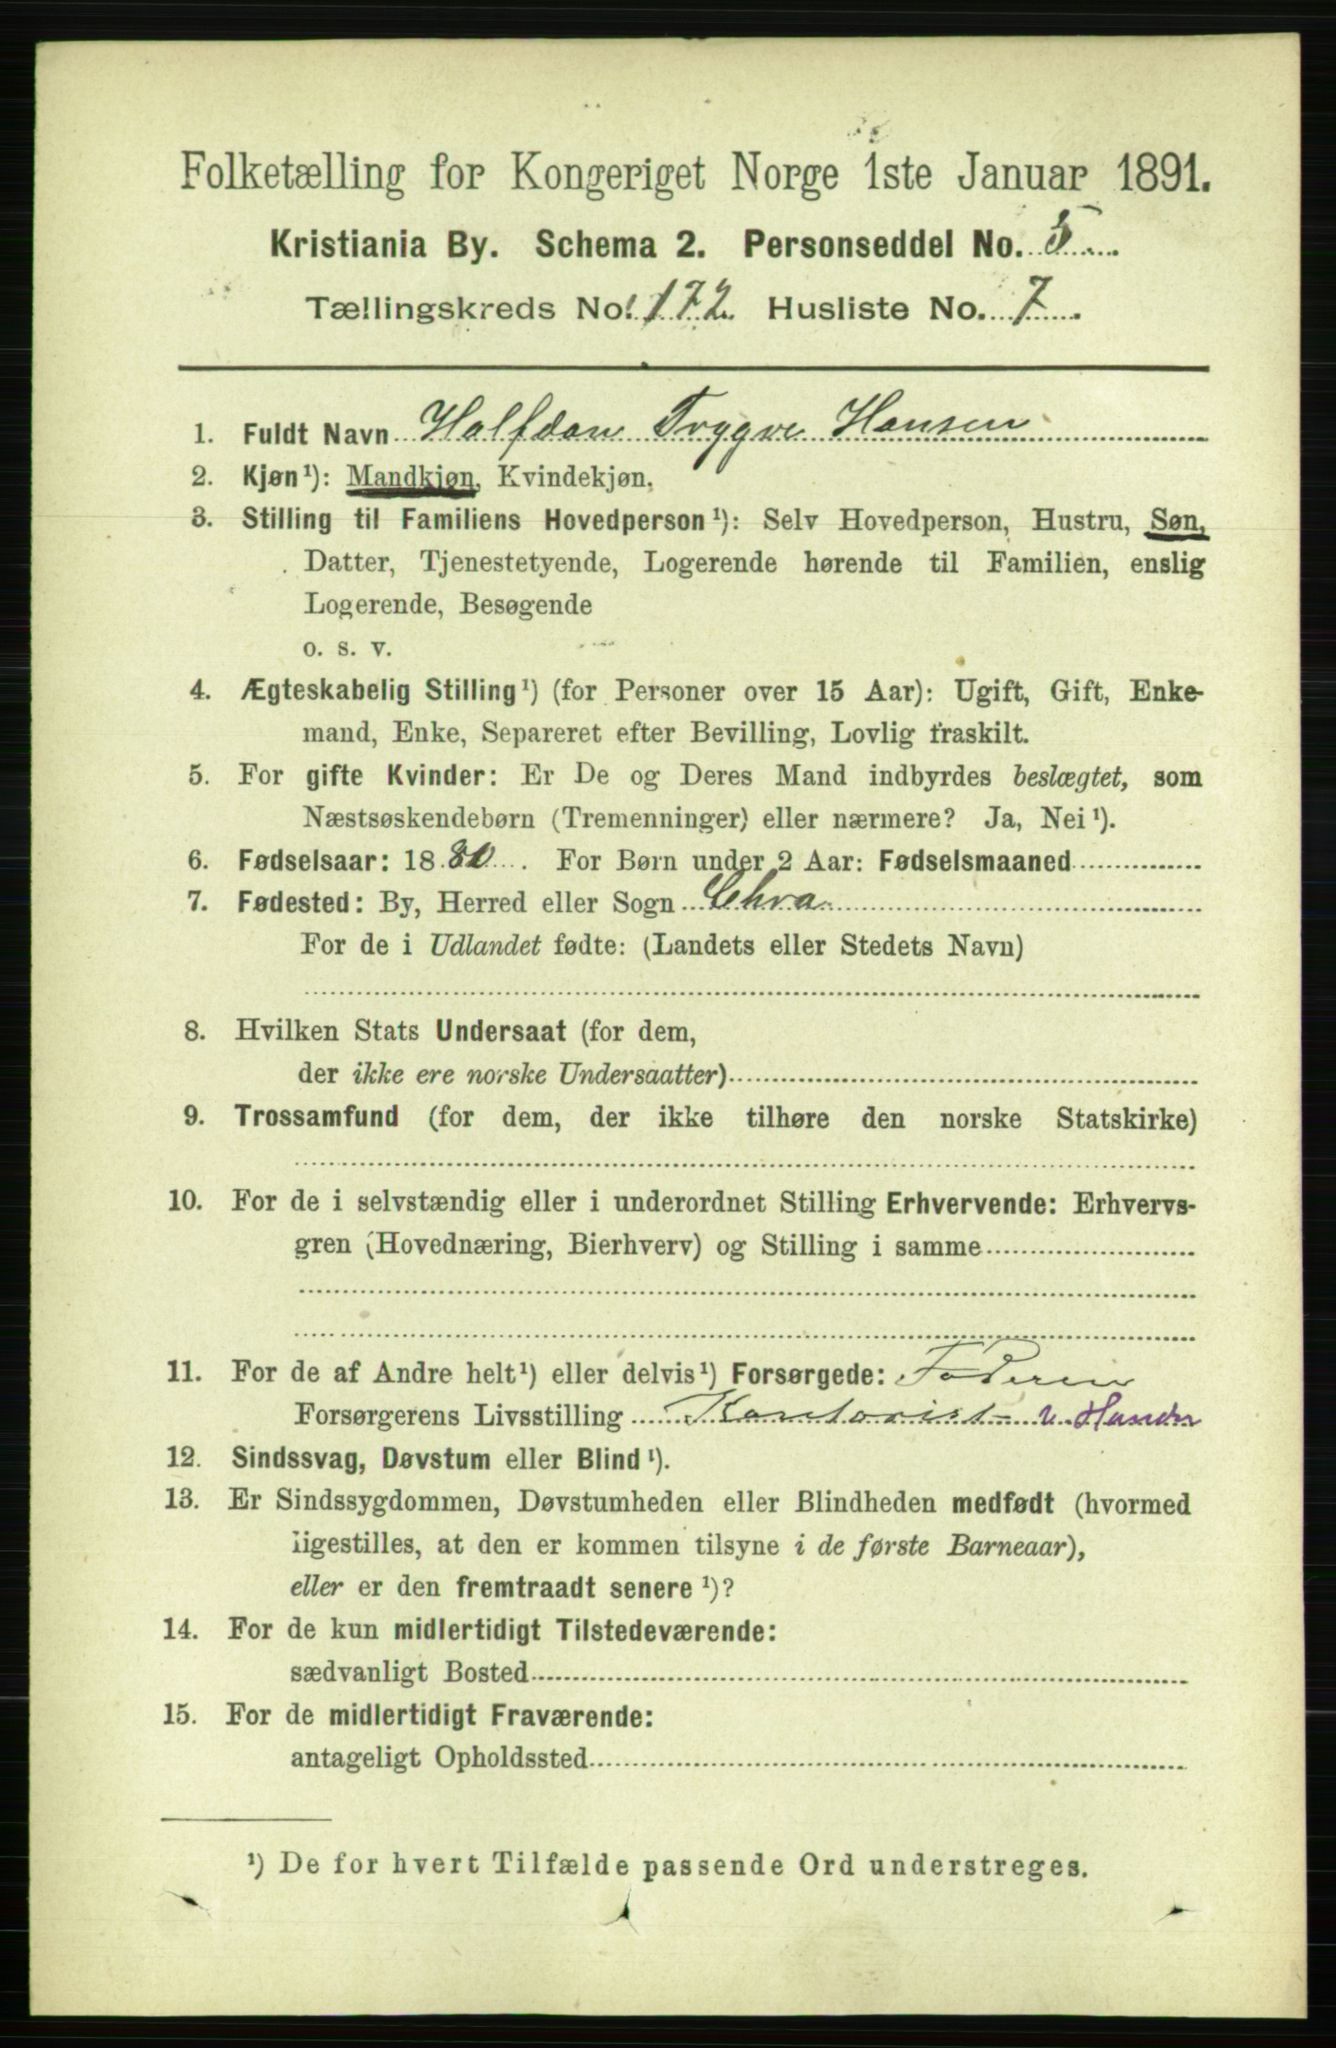 Folketælling for Kongeriget Norge 1ste Januar 1891.
Kristiania By. Schema 2. Personseddel No. 5
Tællingskreds No. 172 Husliste No. 7
1. Fuldt Navn Halfdan Trygve Hansen
2. Kjøn¹): Mandkjøn, Kvindekjøn.
3. Stilling til Familiens Hovedperson¹): Selv Hovedperson, Hustru, Søn,
Datter, Tjenestetyende, Logerende hørende til Familien, enslig
Logerende, Besøgende
o. s. v.
4. Ægteskabelig Stilling¹) (for Personer over 15 Aar): Ugift, Gift, Enke-
mand, Enke, Separeret efter Bevilling, Lovlig fraskilt.
5. For gifte Kvinder: Er De og Deres Mand indbyrdes beslægtet, som
Næstsøskendebørn (Tremenninger) eller nærmere? Ja, Nei¹).
6. Fødselsaar: 1880. For Børn under 2 Aar: Fødselsmaaned
7. Fødested: By, Herred eller Sogn Chra
For de i Udlandet fødte: (Landets eller Stedets Navn)
8. Hvilken Stats Undersaat (for dem,
der ikke ere norske Undersaatter)
9. Trossamfund (for dem, der ikke tilhøre den norske Statskirke)
10. For de i selvstændig eller i underordnet Stilling Erhvervende: Erhvervs-
gren (Hovednæring, Bierhverv) og Stilling i samme
11. For de af Andre helt¹) eller delvis¹) Forsørgede: Faderen
Forsørgerens Livsstilling Kontorist v. Handn
12. Sindssvag, Døvstum eller Blind¹).
13. Er Sindssygdommen, Døvstumheden eller Blindheden medfødt (hvormed
ligestilles, at den er kommen tilsyne i de første Barneaar),
eller er den fremtraadt senere¹)?
14. For de kun midlertidigt Tilstedeværende:
sædvanligt Bosted
15. For de midlertidigt Fraværende:
antageligt Opholdssted
¹) De for hvert Tilfælde passende Ord understreges.